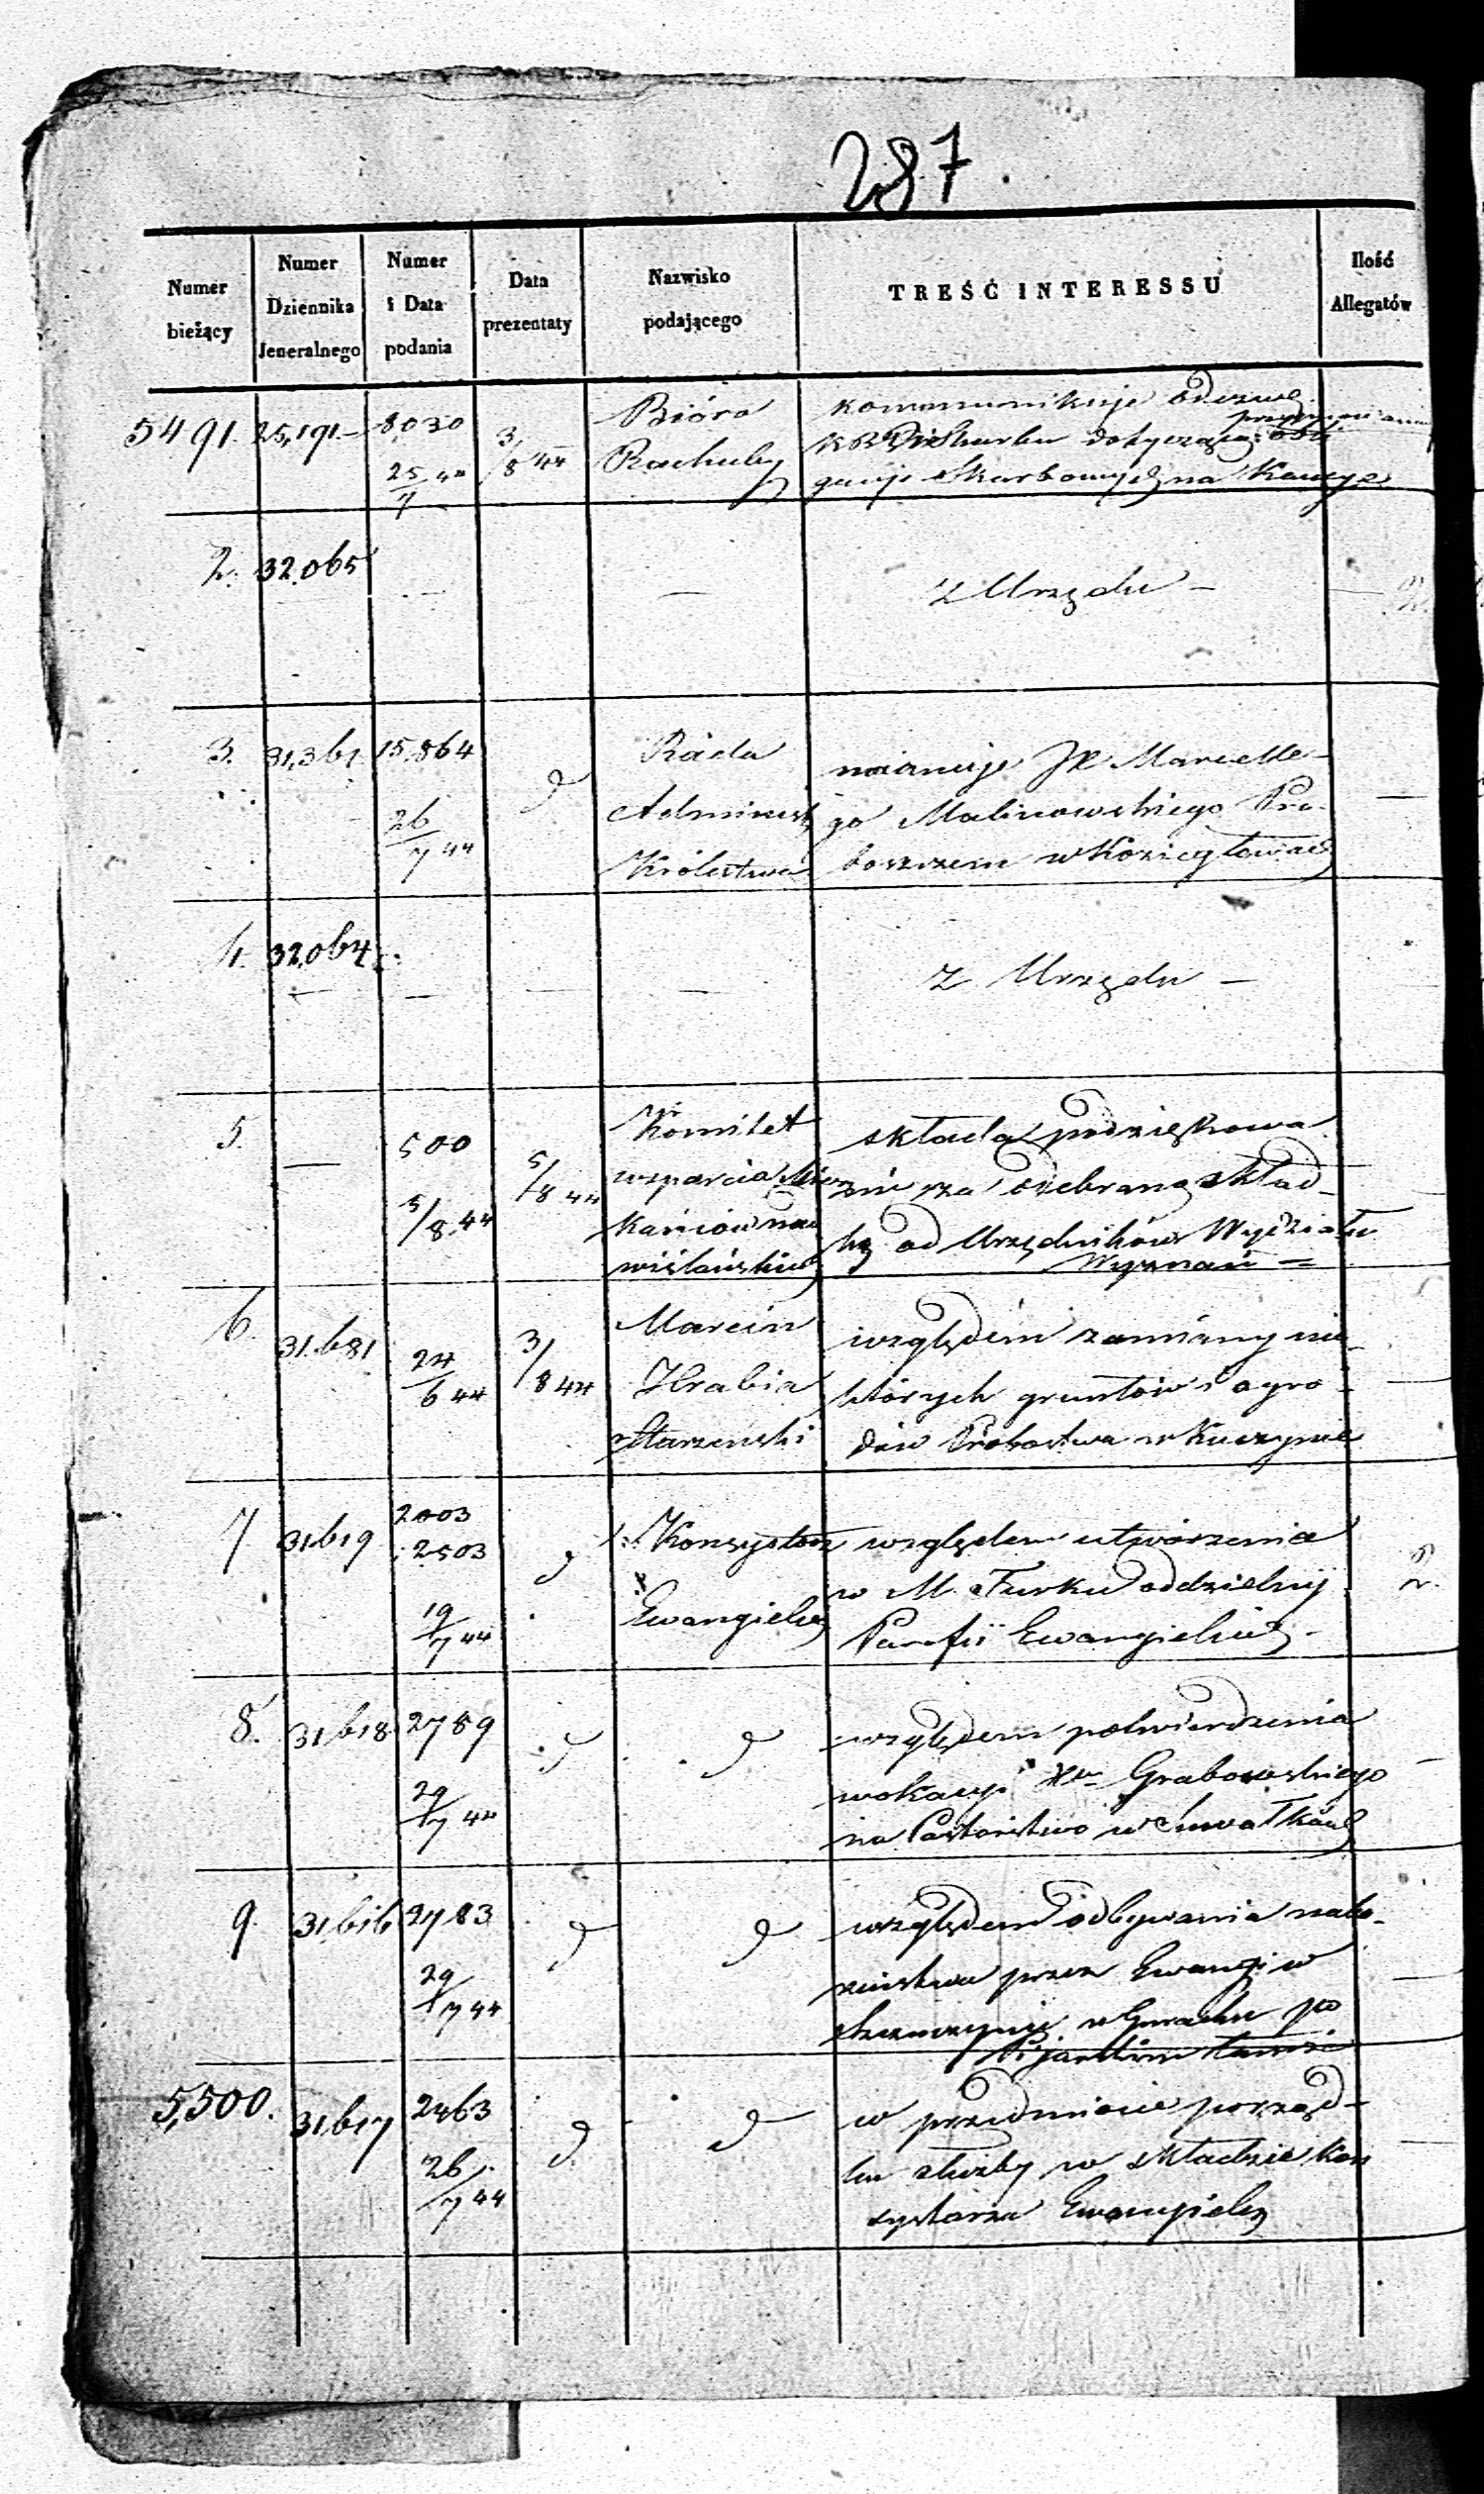 287.
Numer bieżący
Numer Dziennika Jeneralnego
Numer i Data podania
Data prezentaty
Nazwisko podającego
TREŚĆ INTERESSU
Ilość Allegatów
5491. 25,191.— 8,030 25/7 44 3/8 44
Bióro
Rachuby
kommunikuje odezwę
KRPiSkarbu dotyczącą przyjmowania obli
gacji Skarbowych na Kaucye
2. 32.065 — — z Urzędu — — 2.
3. 31,361 15,864 26/7 44 d
Rada
Administ
Królestwa
mianuje JX Marcelle-
go Malinowskiego Pro-
boszczem w Koziegłowach
—
4. 32,064 — — — — z Urzędu —
5. — 500 5/8 44 5/8 44
Komitet
wsparcia Miesz
kańców nad
wiślańskich
składa podziękowa
nie za odebraną skład-
kę od Urzędników Wydziału
Wyznań —
6. 31.681 24/6 44 3/8 44
Marcin
Hrabia
Starzeński
względem zamiany nie-
których gruntów i ogro-
dów Probostwa w Kuczynie
—
7 31,619 2003 2503 19/7 44 d
Konsystorz
Ewangielic
względem utworzenia
w M. Turku oddzielnej
Parafii Ewangielickiej
2.
8. 31,618 2789 29/7 44 d d
względem potwierdzenia
wokacyi Xa Grabowskiego
na Pastorstwo w Suwałkach
—
9. 31,616 2783 29/7 44 d d
względem odbywania nabo-
żeństwa przez Ewangi w
w Gmachu po
Pijarskim tamże
—
5,500. 31,617 2463 26/7 44 d d
w przedmiocie porząd-
ku służby w składzie Kon
systorza Ewangielic